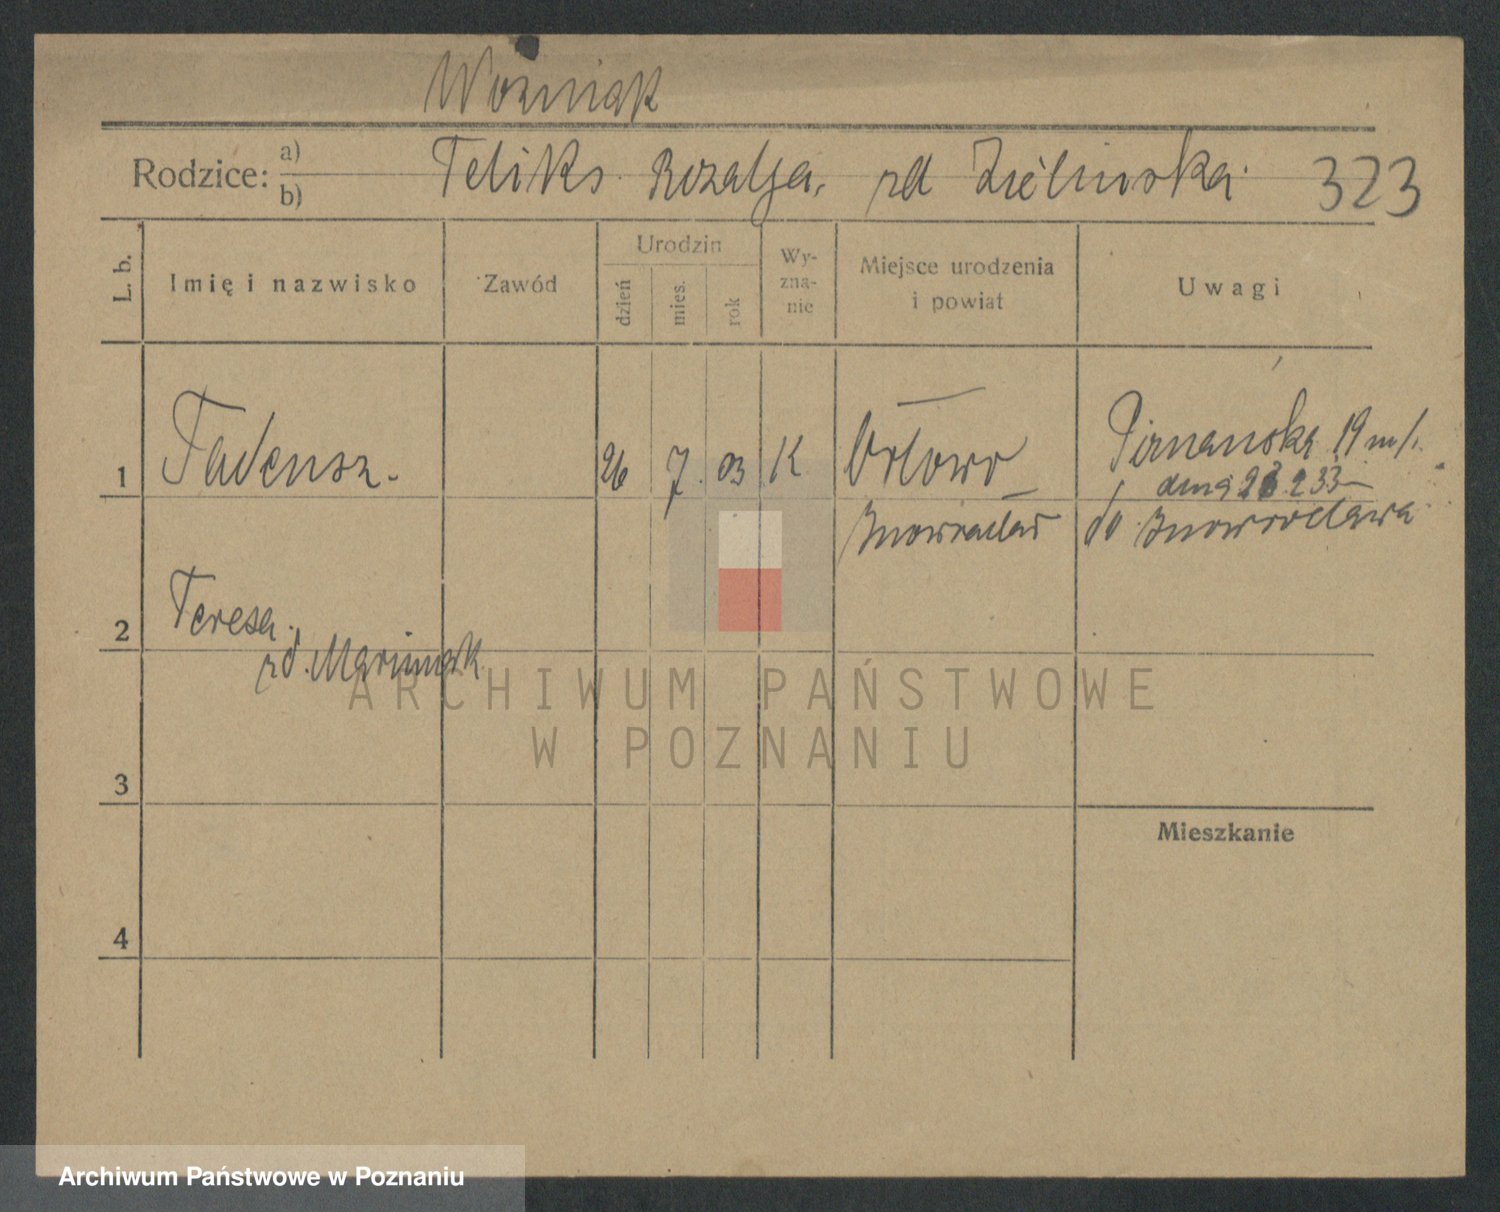 Woźniak
Rodzice: a) b) Feliks. Rozalja, zd Zielinska. 323
L. b.
Imię i nazwisko
Zawód
Urodzin
dzień
mies.
rok
Wy-
zna-
nie
Miejsce urodzenia
i powiat
Uwagi
1 Tadeusz. 26 7. 03 K Orłowo
19 m/.
2 33
Inowrocław do Inowrocławia
2 Teresa.
zd. Marciniak
3
Mieszkanie
4
ARCHIWUM PAŃSTWOWE
W POZNANIU
Archiwum Państwowe w Poznaniu